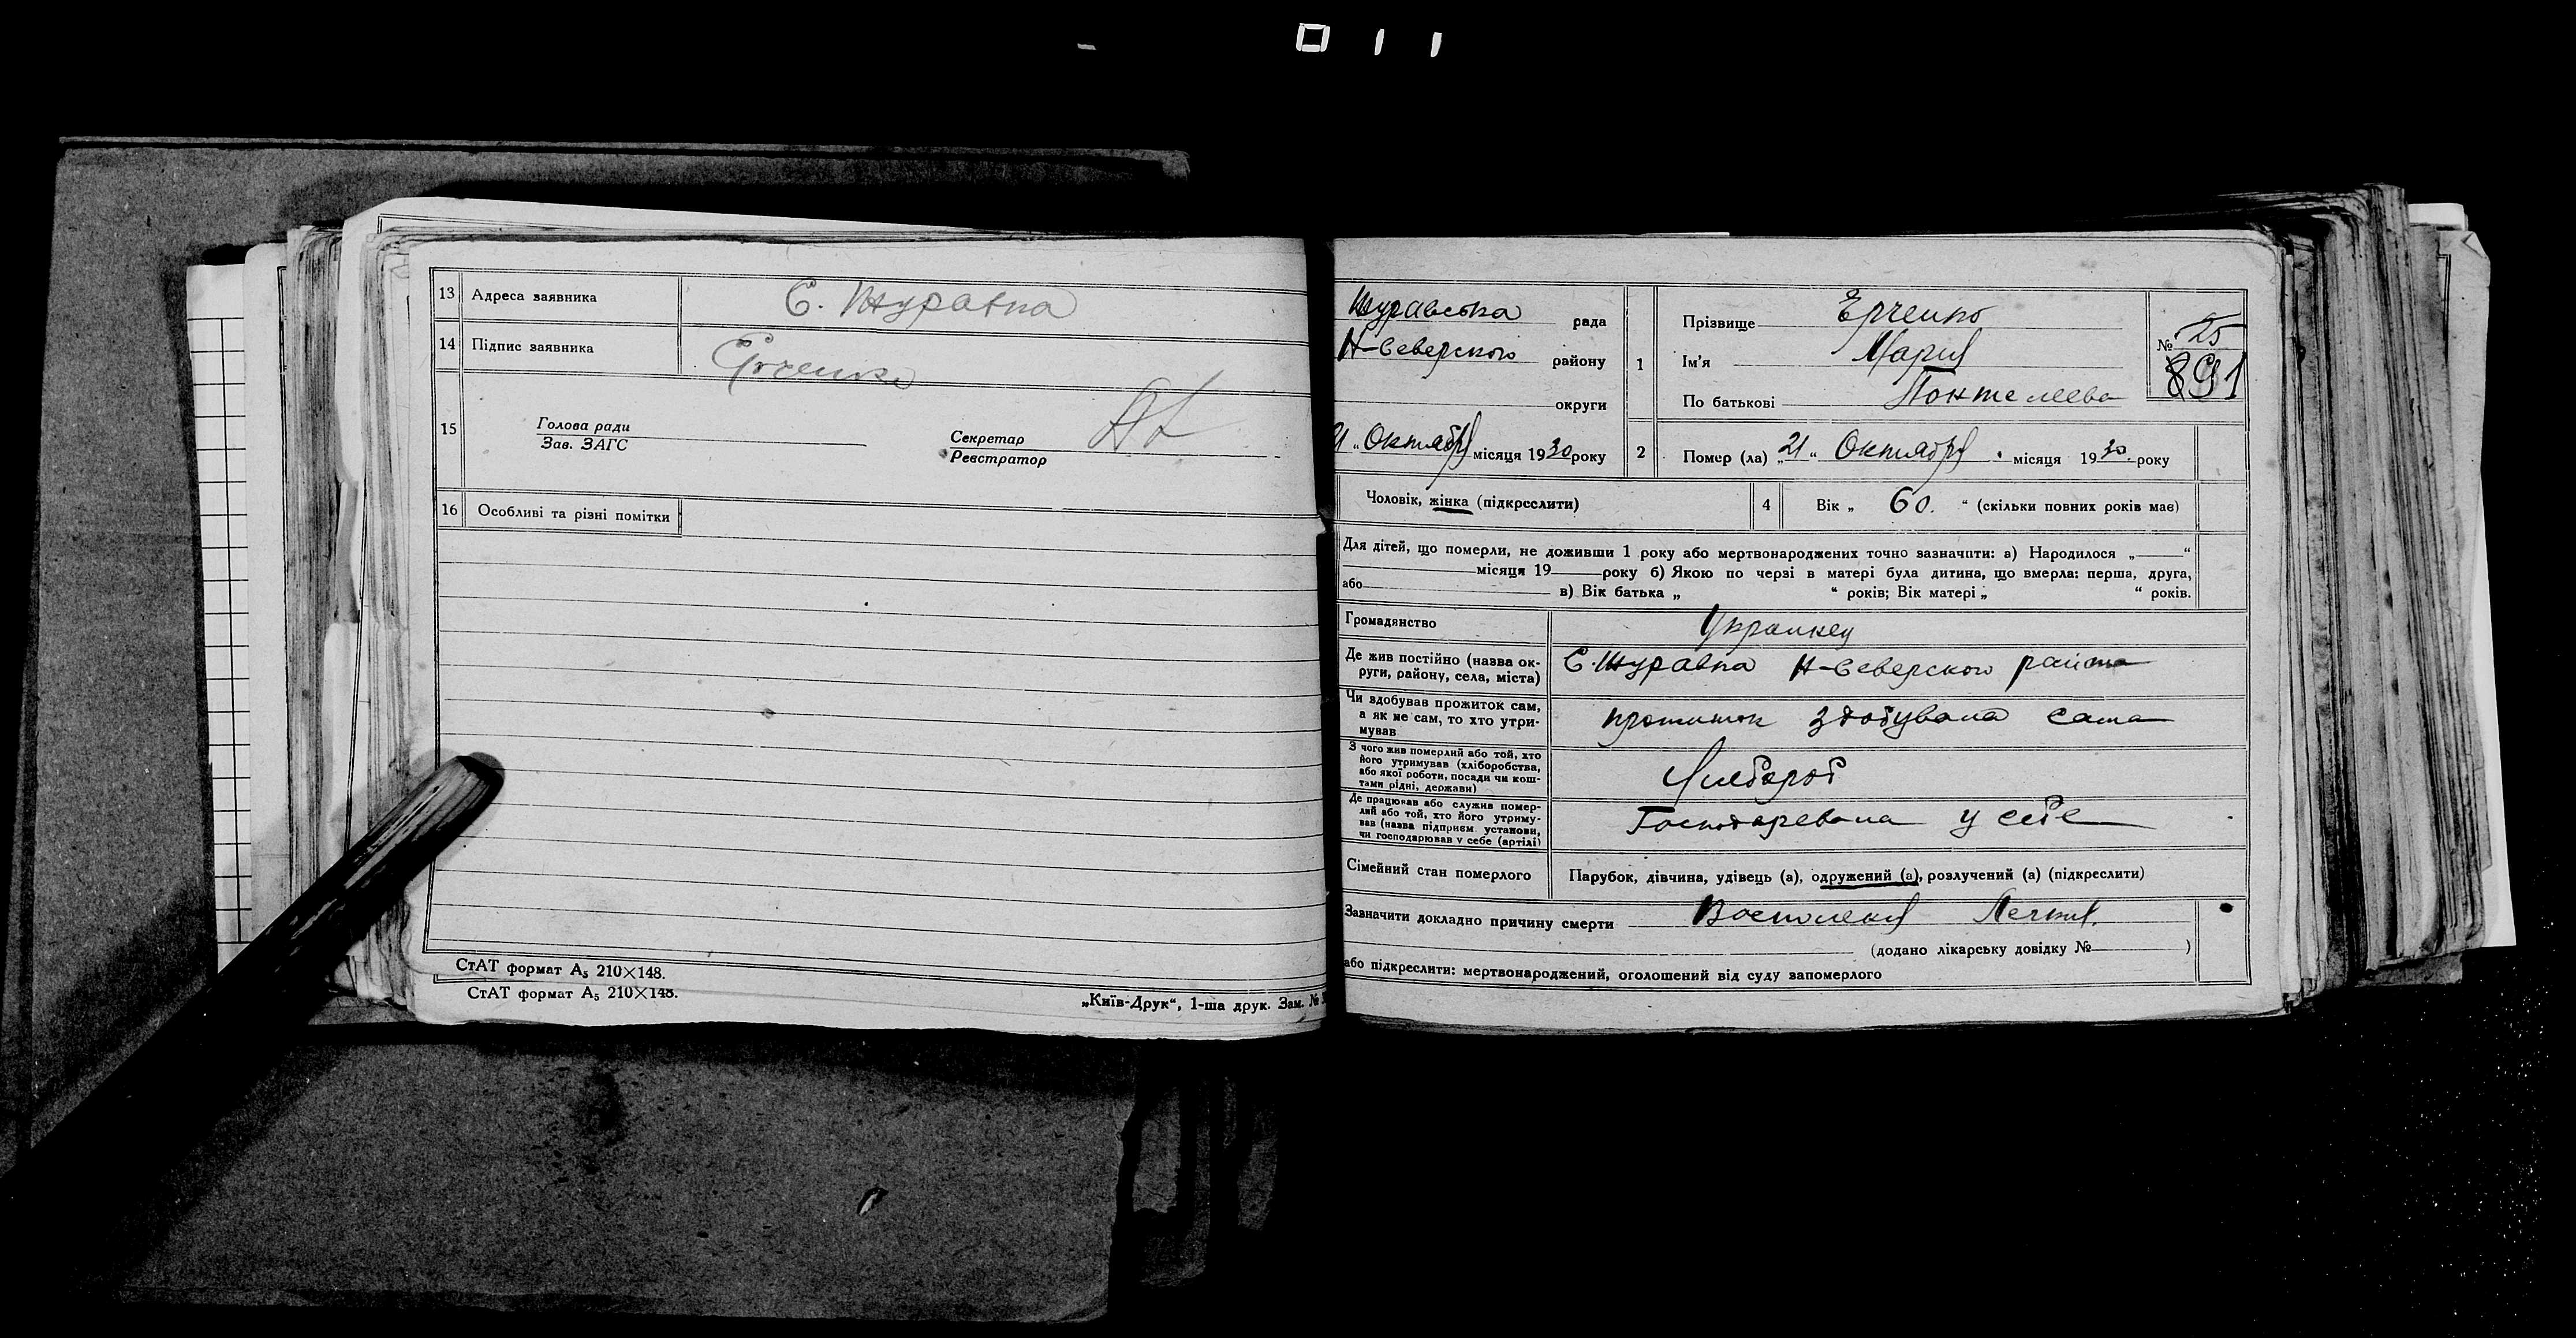 13 Адреса заявника С. Журавка
14 Підпис заявника Єрченко
15 Голова ради
Зав. ЗАГС
Секретар
Реєстратор
16 Особливі та різні помітки
СтАТ формат А₅ 210×148.
СтАТ формат А₅ 210×148.
„Київ-Друк“, 1-ша друк. Зам. №
Журавська рада
Н-Северского району
округи
21 „ Октября місяця 1930 року
1 Прізвище Ерченко
Ім'я Мария
По батькові Понтелеева
№ 25
891
2 Помер (ла) „21“ Октября місяця 1930 року
Чоловік, жінка (підкреслити)
4 Вік „ 60. “ (скільки повних років має)
Для дітей, що померли, не доживши 1 року або мертвонароджених точно зазначити: а) Народилося „ “
місяця 19 року б) Якою по черзі в матері була дитина, що вмерла: перша, друга,
або в) Вік батька „ “ років; Вік матері „ “ років.
Громадянство Украинец
Де жив постійно (назва ок-
руги, району, села, міста) С. Журавка Н-Северского района
Чи вдобував прожиток сам,
а як не сам, то хто утри-
мував прожиток здобувала сама
З чого жив померлий або той, хто
його утримував (хліборобства,
або якої роботи, посади чи кош-
тами рідні, держави) Хлебороб
Де працював або служив помер-
лий або той, хто його утриму-
вав (назва підприєм. установи,
чи господарював у себе (артілі) Господаревала у себе
Сімейний стан померлого Парубок, дівчина, удівець (а), одружений (а), розлучений (а) (підкреслити)
Зазначити докладно причину смерти Востоления Легких.
(додано лікарську довідку № )
або підкреслити: мертвонароджений, оголошений від суду запомерлого